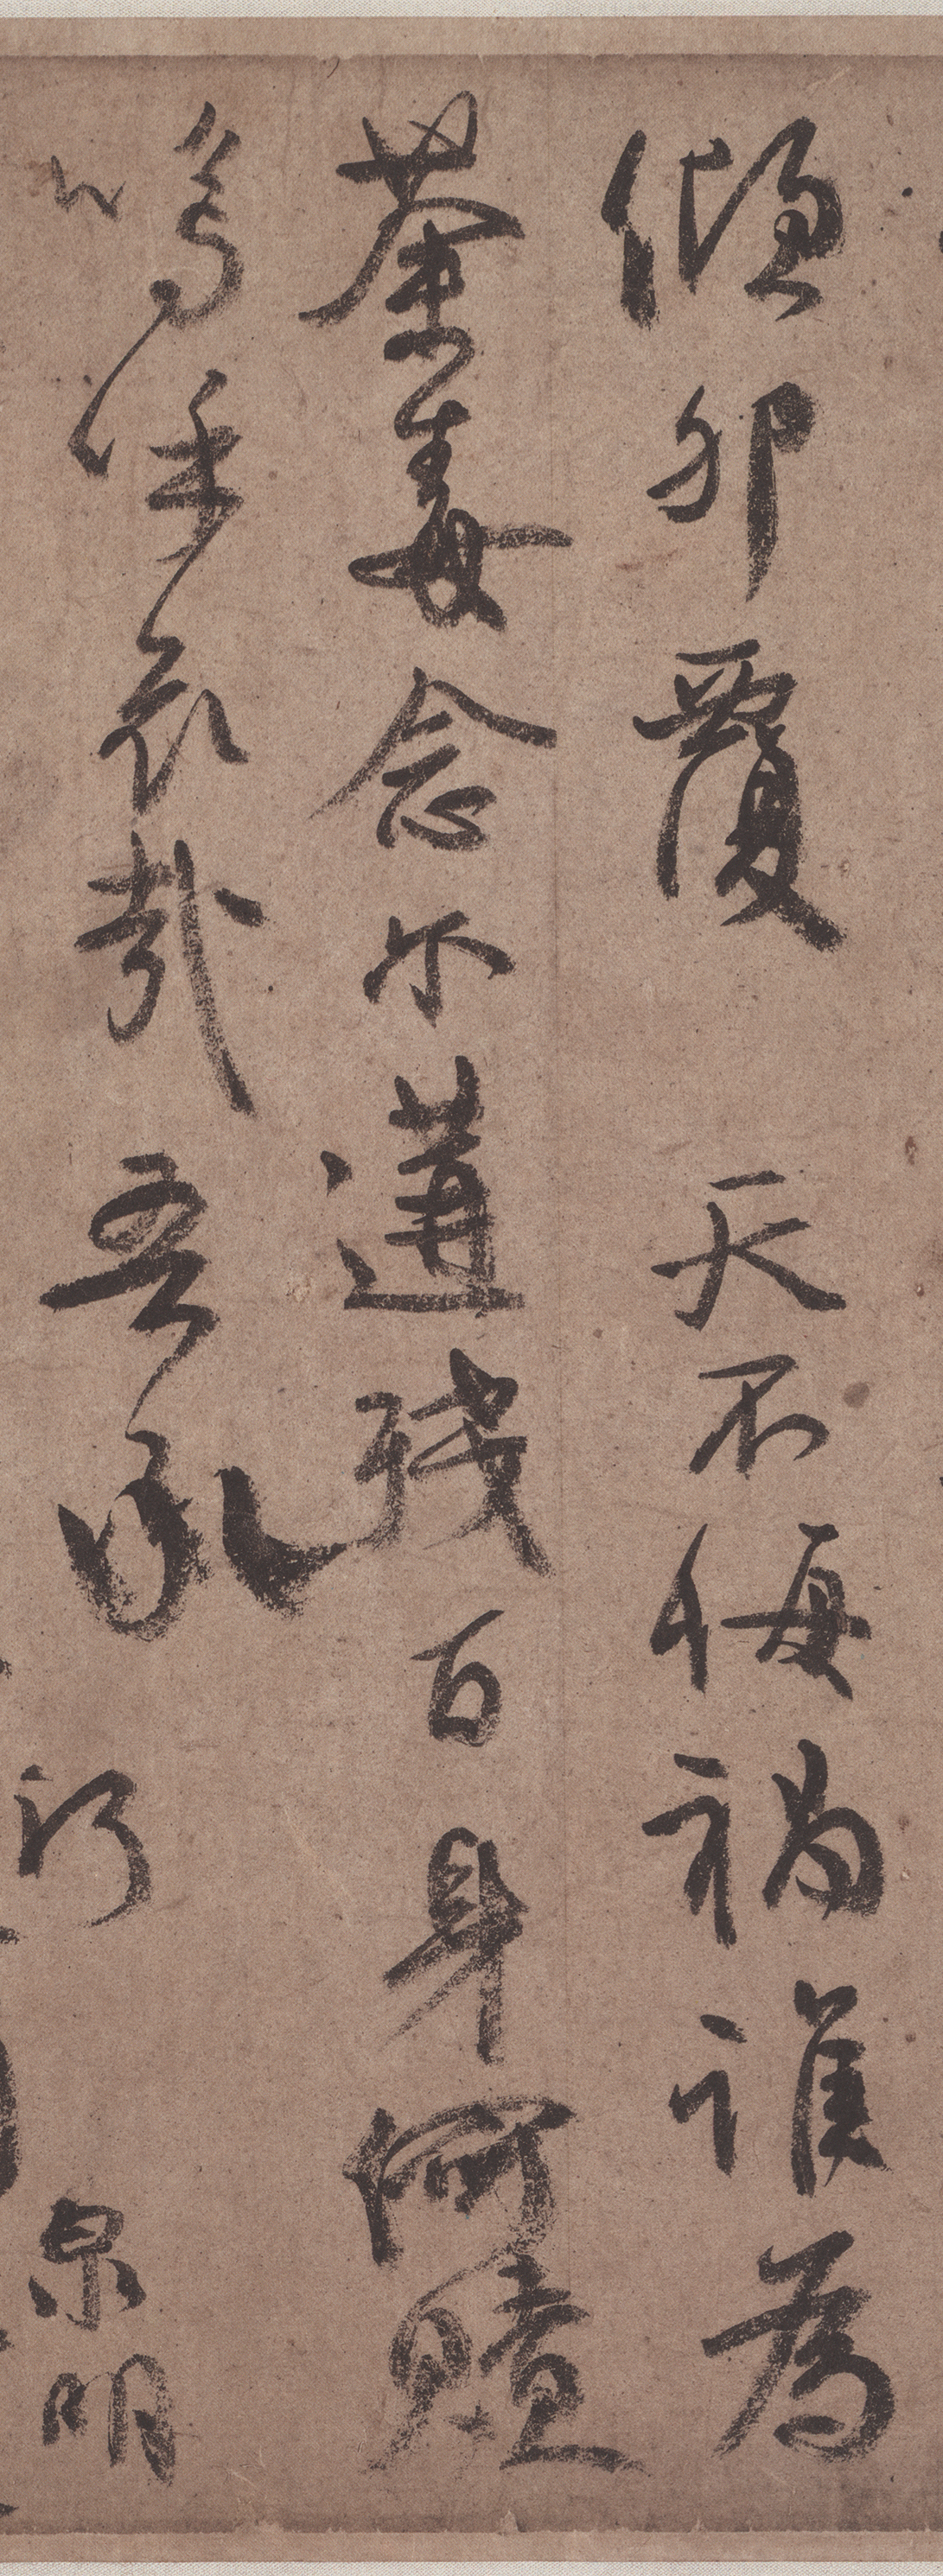 傾卵覆天不悔禍誰為
荼毒念尔遘殘百身何贖
嗚呼哀哉吾承
泉明